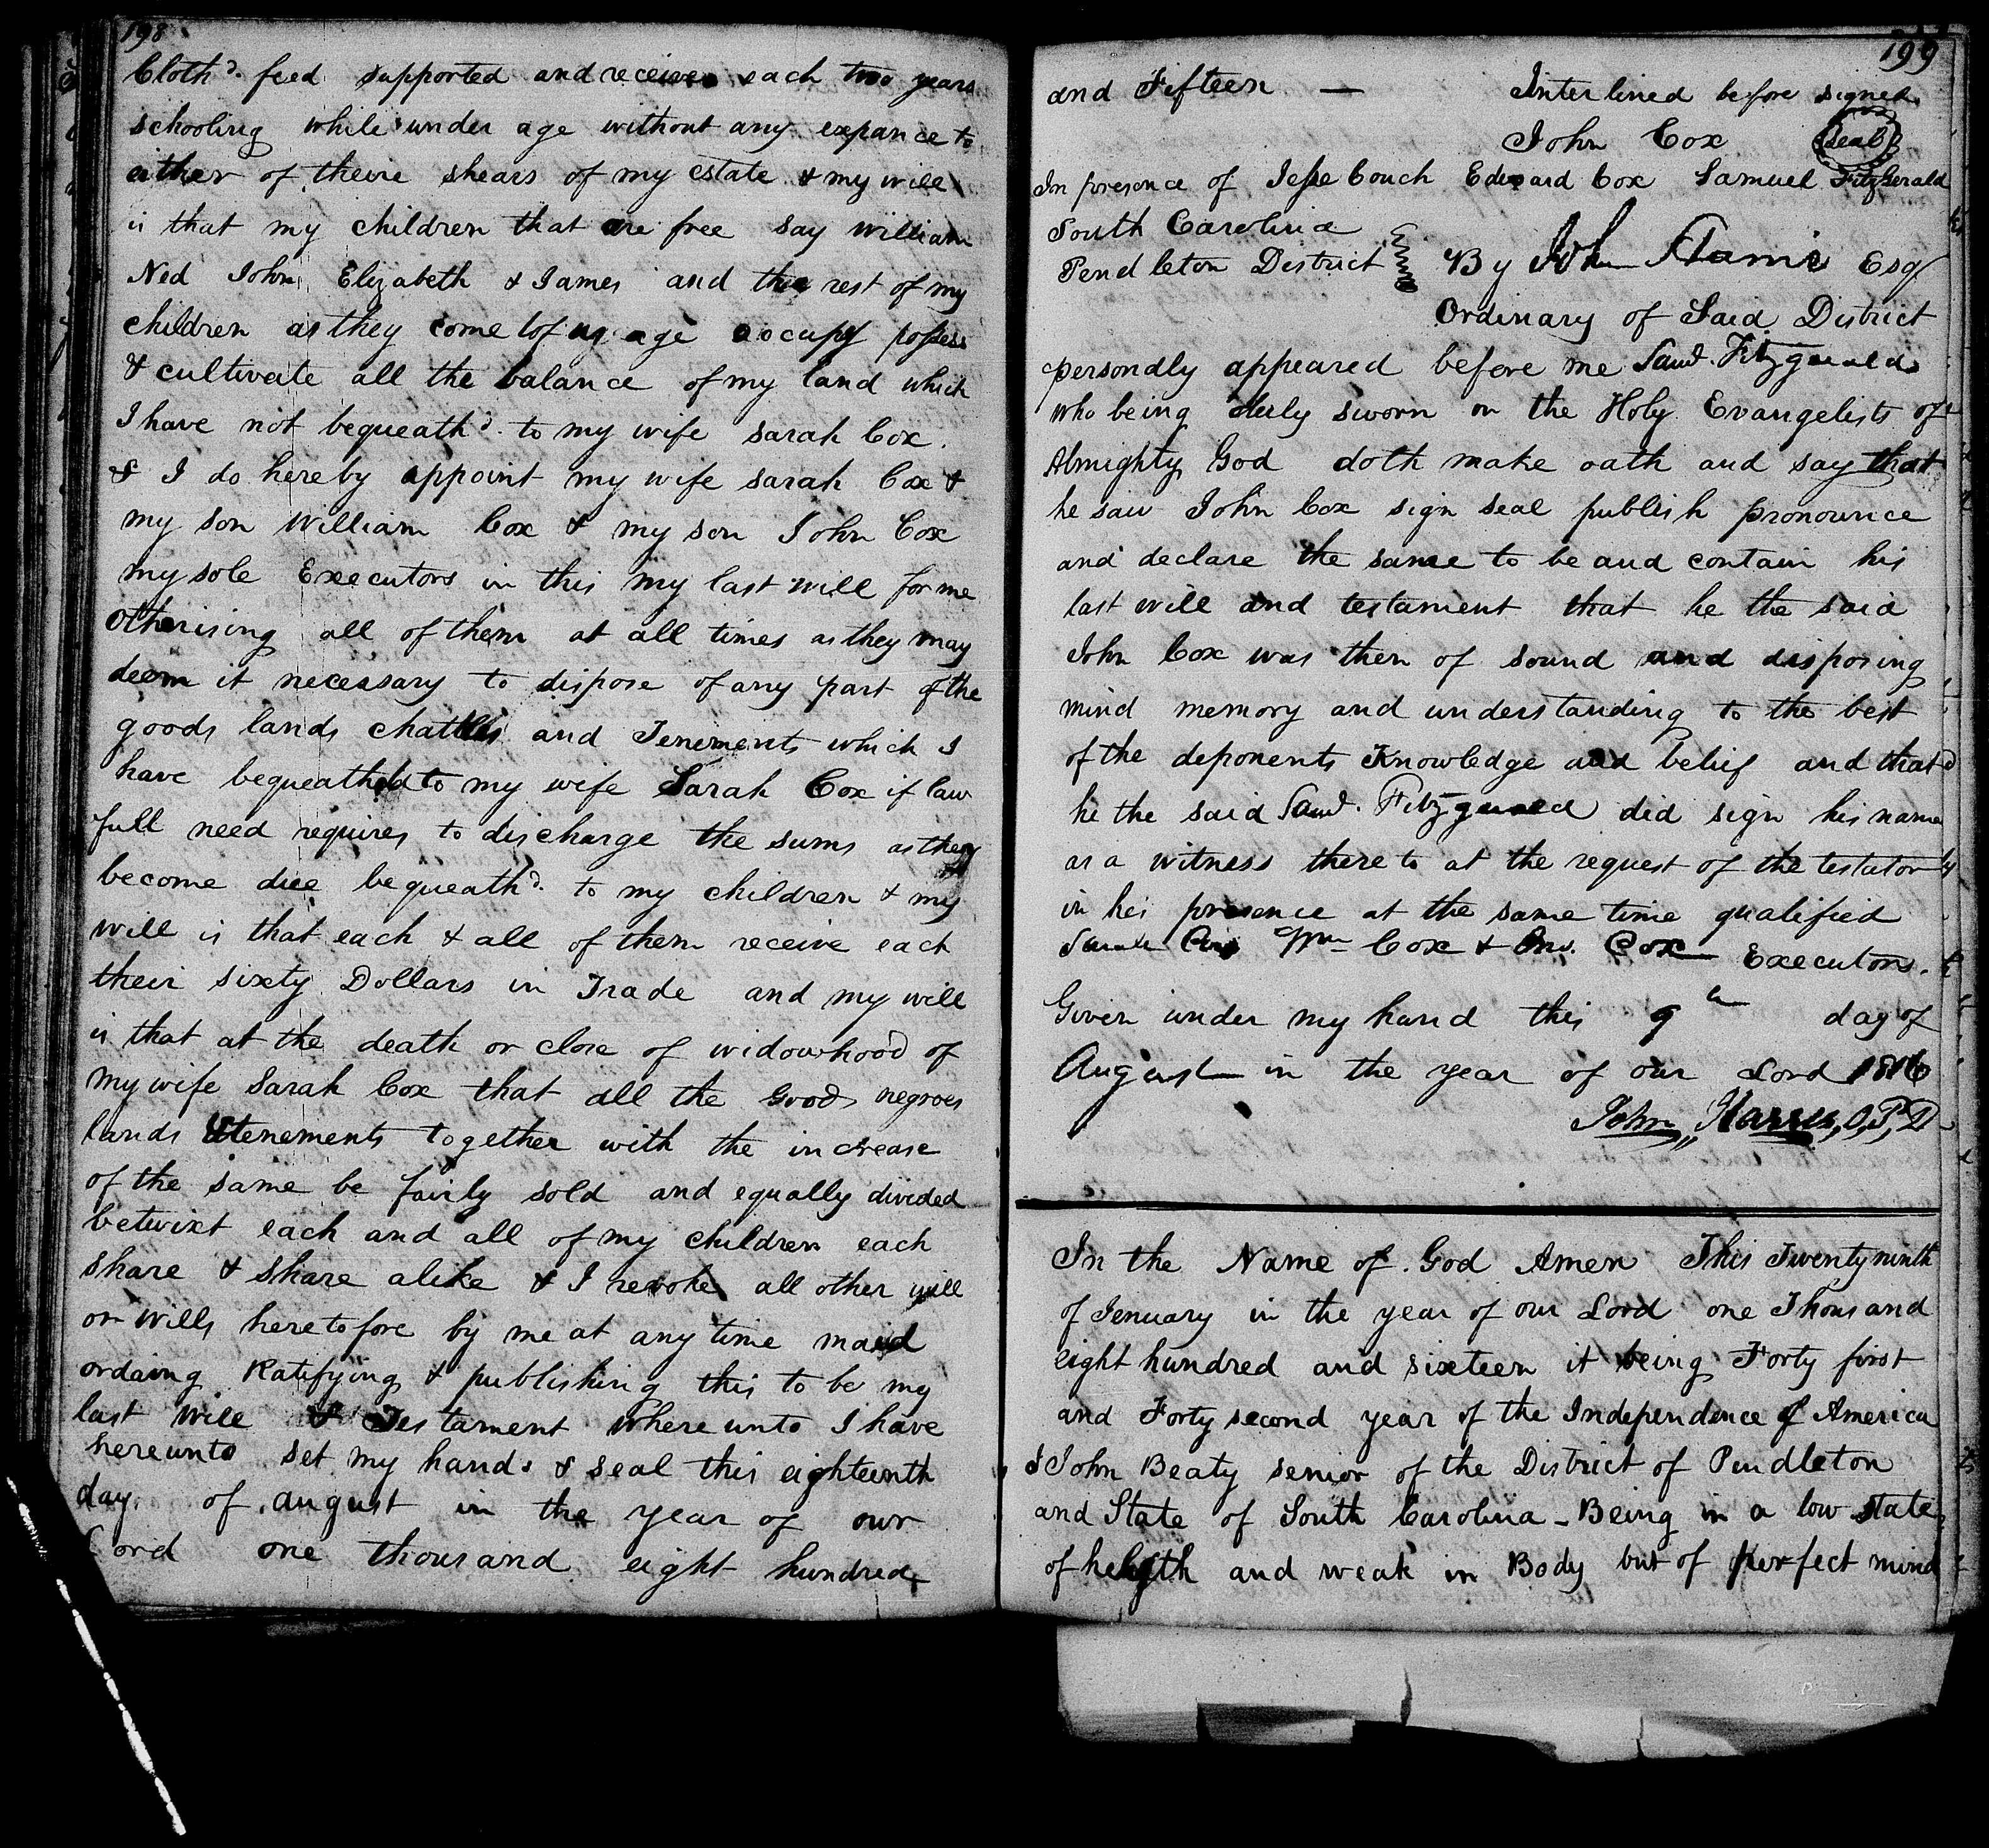 198
Clothd. feed supported and receive each two years
schooling while under age without any expance to
either of theire shears of my estate & my will
is that my children that are free say William
Ned John Elizabeth & James and the rest of my
children as they come of age occupy possess
& cultivate all the balance of my land which
I have not bequeathd. to my wife Sarah Cox.
& I do hereby appoint my wife Sarah Cox &
my son William Cox & my son John Cox
my sole Executors in this my last will for me
Otherising all of them at all times as they may
deem it necessary to dispose of any part of the
goods lands chattles and Tenements which I
have bequeathed to my wife Sarah Cox if law
full need requires to discharge the sums as they
become due bequeathd. to my children & my
will is that each & all of them receive each
their sixty Dollars in Trade and my will
is that at the death or close of widowhood of
my wife Sarah Cox that all the Goods negroes
lands & tenements together with the increase
of the same be fairly sold and equally divided
betwixt each and all of my children each
share & share alike & I revoke all other will
or wills heretofore by me at any time maid
ordaing Ratifying & publishing this to be my
last will & Testament where unto I have
hereunto set my hand & seal this eighteenth
day of august in the year of our
Lord one thousand eight hundred
199
and Fifteen — Interlined before signed
John Cox Seal
In presence of Jesse Couch Edward Cox Samuel Fitzgerald
South Carolina
Pendleton District By John Harris Esqr
Ordinary of Said District
persondly appeared before me Saml. Fitzgerald
who being duly sworn on the Holy Evangelists of
Almighty God doth make oath and say that
he saw John Cox sign seal publish pronounce
and declare the same to be and contain his
last will and testament that he the said
John Cox was then of sound and disposing
mind memory and understanding to the best
of the deponents Knowledge and belief and that
he the said Saml. Fitzgerald did sign his name
as a witness there to at the request of the testator
in his presence at the same time qualified
Sarah Cox Wm Cox & Jno. Cox Executors.
Given under my hand this 9th day of
August in the year of our Lord 1816
John Harris, O, P, D
In the Name of God Amen This Twenty ninth
of Jenuary in the year of our Lord one Thousand
eight hundred and sixteen it being Forty first
and Forty second year of the Independence of America
I John Beaty senior of the District of Pendleton
and State of South Carolina - Being in a low state
of helgth and weak in Body but of perfect mind